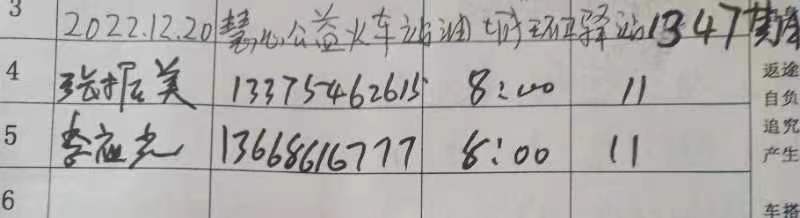 3 2022.12.20 慧心公益火车站 环卫驿站 1347
4 张振美 13375462615 8:00 11 返途
自负
5 李应光 13668616777 8:00 11 追究
产生
6 车搭